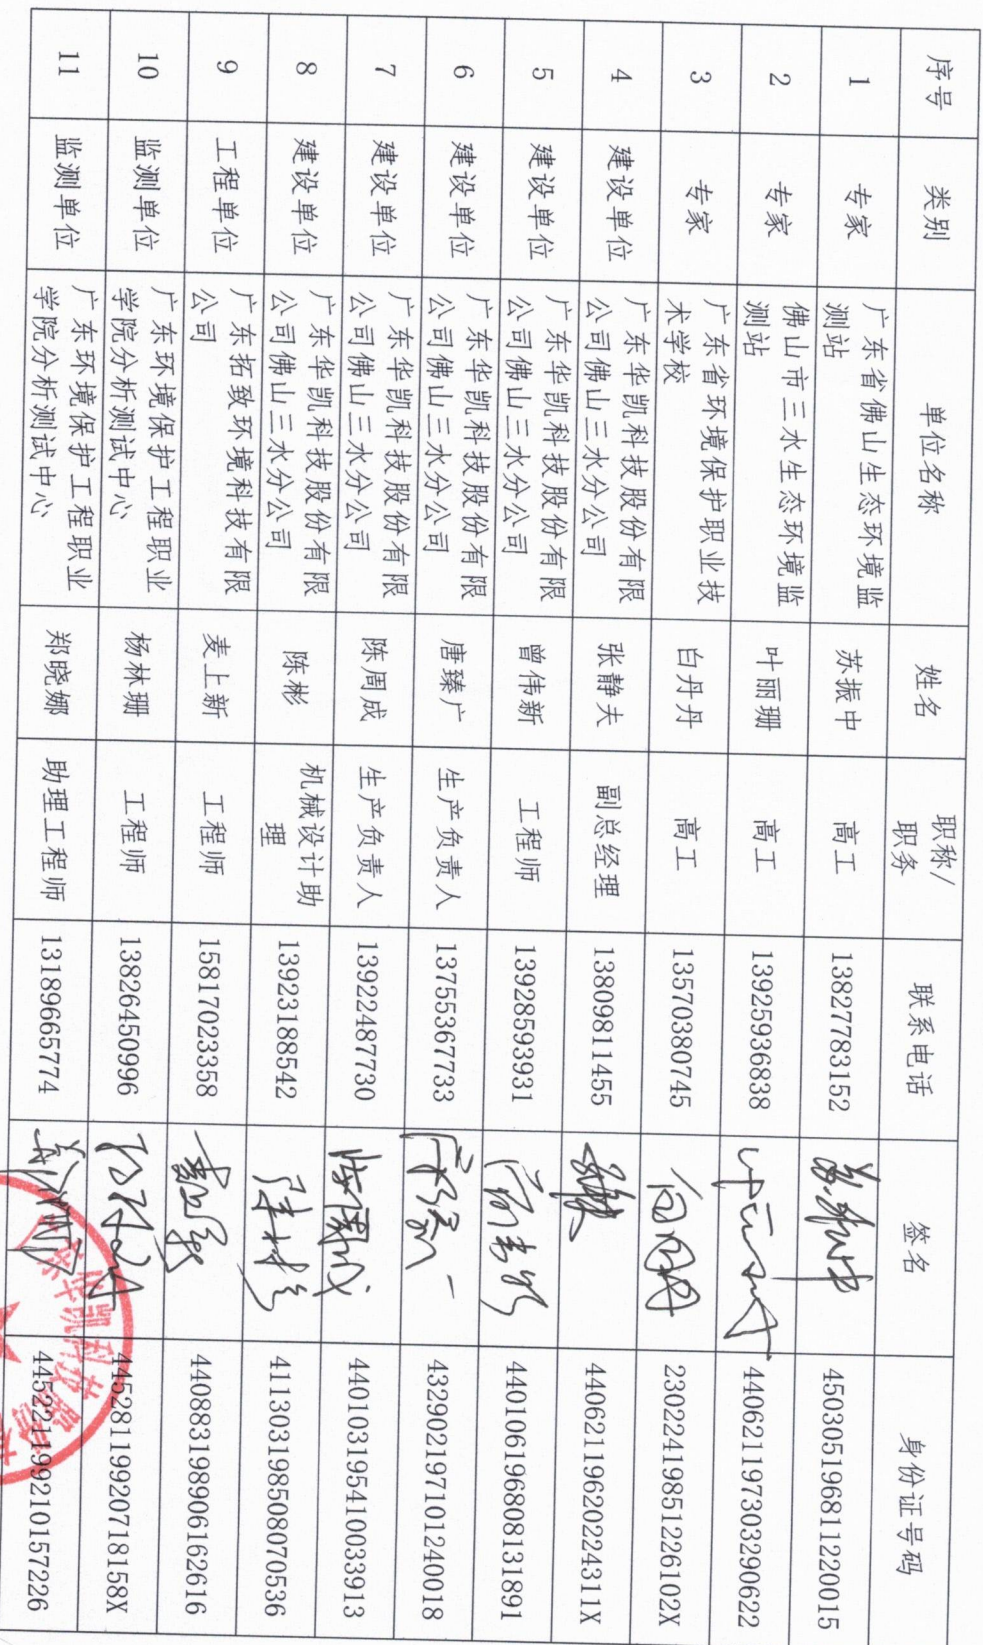 序号 类别 单位名称 姓名 职称/职务 联系电话 签名 身份证号码
1 专家 广东省佛山生态环境监测站 苏振中 高工 13827783152 苏振中 450305196811220015
2 专家 佛山市三水生态环境监测站 叶丽珊 高工 13925936838 叶丽珊 440621197303290622
3 专家 广东省环境保护职业技术学校 白丹丹 高工 13570380745 白丹丹 23022419851226102X
4 建设单位 广东华凯科技股份有限公司佛山三水分公司 张静夫 副总经理 13809811455 44062119620224311X
5 建设单位 广东华凯科技股份有限公司佛山三水分公司 曾伟新 工程师 13928593931 440106196808131891
6 建设单位 广东华凯科技股份有限公司佛山三水分公司 唐臻广 生产负责人 13755367733 432902197101240018
7 建设单位 广东华凯科技股份有限公司佛山三水分公司 陈周成 生产负责人 13922487730 陈周成 440103195410033913
8 建设单位 广东华凯科技股份有限公司佛山三水分公司 陈彬 机械设计助理 13923188542 陈彬 411303198508070536
9 工程单位 广东拓致环境科技有限公司 麦上新 工程师 15817023358 440883198906162616
10 监测单位 广东环境保护工程职业学院分析测试中心 杨林珊 工程师 13826450996 44528119920718158X
11 监测单位 广东环境保护工程职业学院分析测试中心 郑晓娜 助理工程师 13189665774 445221199210157226
东华凯科技股份有